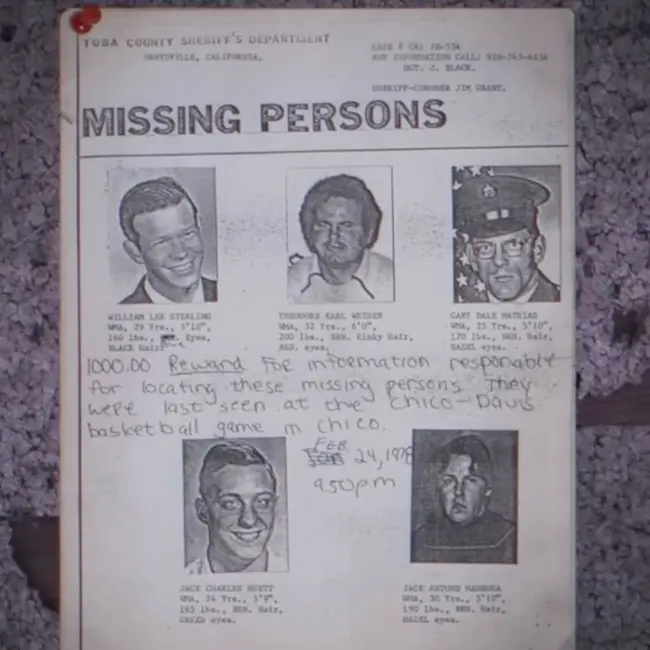 YUBA COUNTY SHERIFF'S DEPARTMENT
MARYSVILLE, CALIFORNIA.
CASE # CR: 78-534
ANY INFORMATION CALL:
SGT. J. BLACK.
SHERIFF-CORONER JIM GRANT.
MISSING PERSONS
WILLIAM LEE STERLING
WMA, 29 Yrs., 5'10",
160 lbs., Eyes,
BLACK Hair
THEODORE EARL WEIHER
WMA, 32 Yrs., 6'0",
200 lbs., BRN. Kinky Hair,
BRN. eyes.
GARY DALE MATHIAS
WMA, 25 Yrs., 5'10",
170 lbs., BRN. Hair,
HAZEL eyes.
1000.00 Reward For information responsable
for locating these missing persons They
were last seen at the Chico-Davis
basketball game in Chico.
FEB.
24, 1978
950pm
JACK CHARLES HUETT
WMA, 24 Yrs., 5'9",
165 lbs., BRN. Hair,
GREEN eyes.
JACK ANTONE MADRUGA
WMA, 30 Yrs., 5'10",
190 lbs., BRN. Hair,
HAZEL eyes.